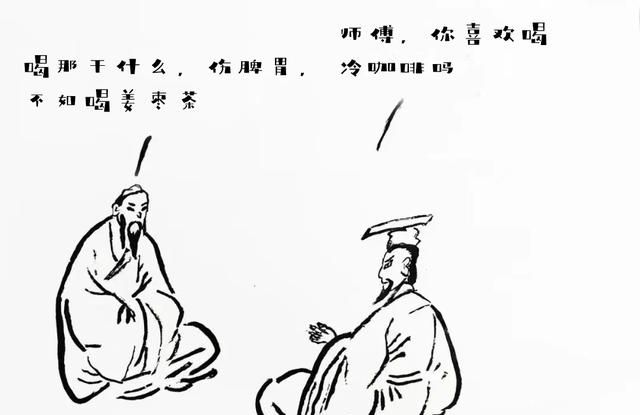 师傅，你喜欢喝
冷咖啡吗
喝那干什么，伤脾胃，
不如喝姜枣茶